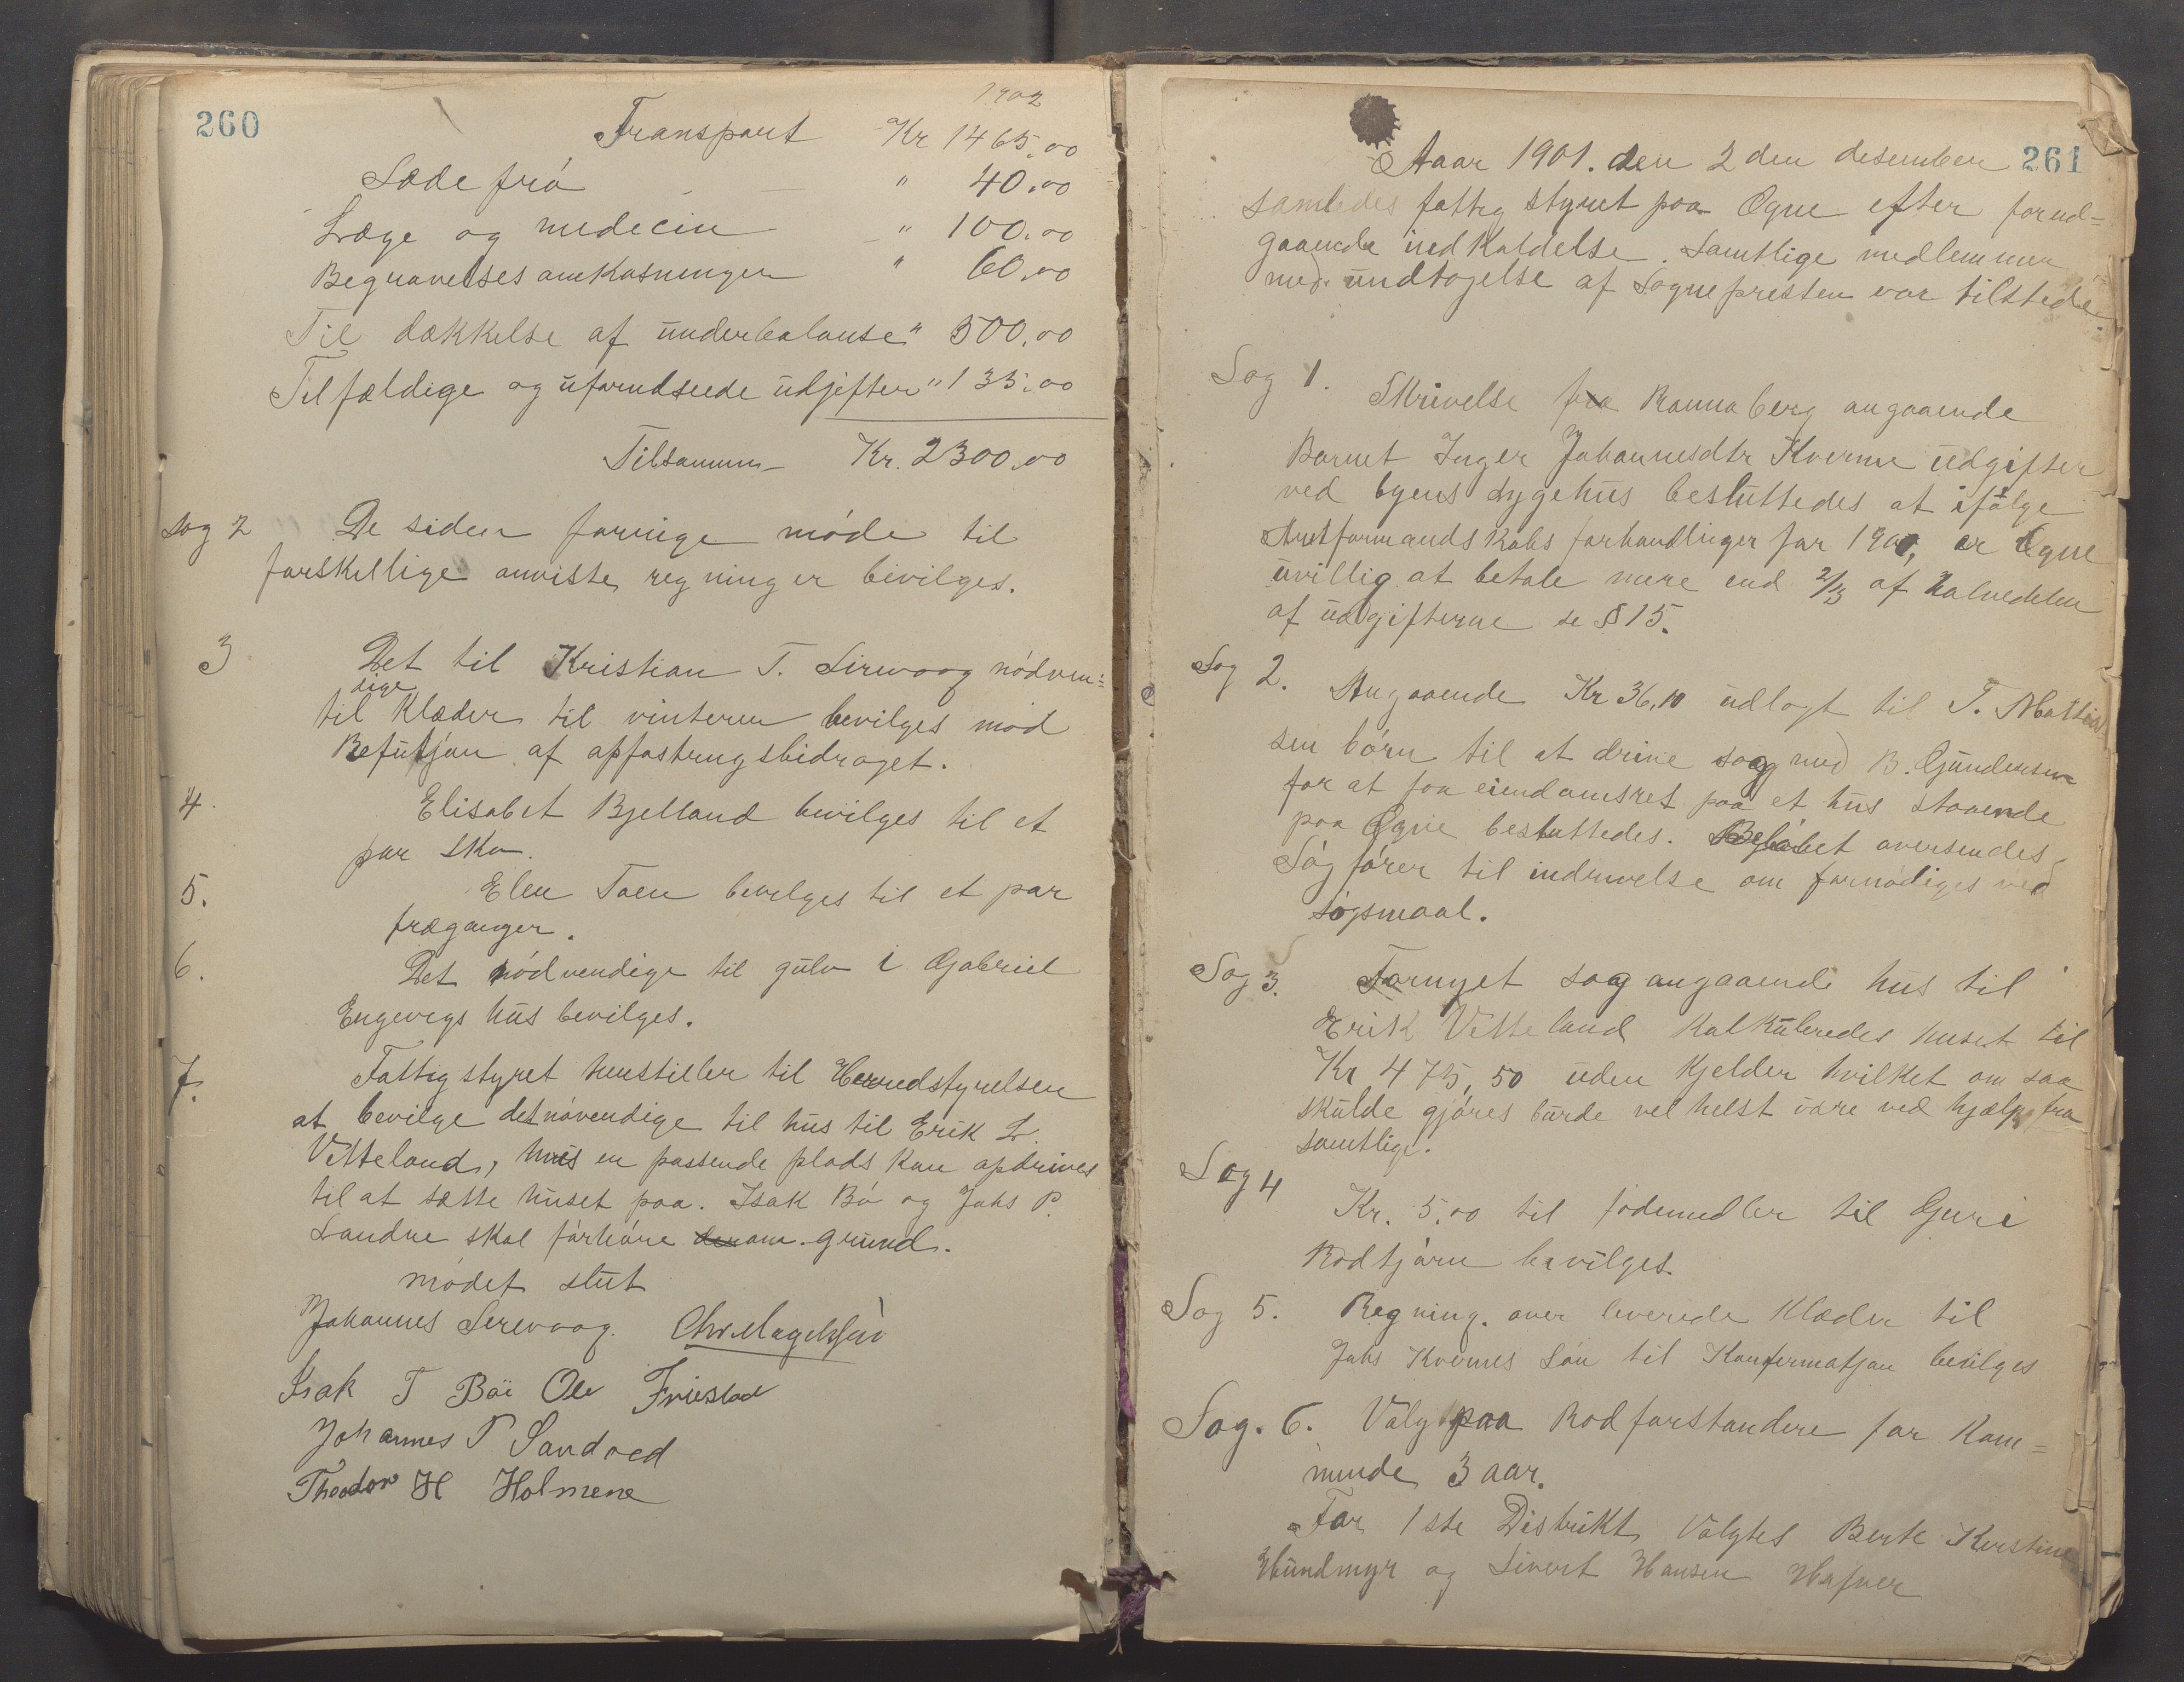 260
1902
Transport Kr 1465.00
Sædefrö " 40.00
Læge og medecin " 100.00
Begravelsesomkosninger " 60.00
Til dækkelse af underbalanse " 500.00
Tilfældige og uforudseede udjifter " 135.00
Tilsammen Kr. 2300.00
Sag 2 De siden forrige möde til
forskellige anviste regninger bevilges.
3 Det til Kristian T. Sirevaag nödven=
dige
til Klæder til vinteren bevilges mod
Refutjon af opfostrings bidraget.
4. Elisabet Bjelland bevilges til et
par sko.
5. Elen Toen bevilges til et par
træganger.
6. Det nödvendige til gulv i Gabriel
Engevigs hus bevilges.
7. Fattigstyret henstiller til Herredstyrelsen
at bevilge det növendige til hus til Erik L.
Vitteland, hvis en passende plads kan opdrives
til at sætte huset paa. Isak Bö og Johs P.
Sandve skal förhöre om grund.
mödet slut
Johannes Sirevaag. Chr. Magelssen
Isak T Böi Ole Friestad
Johannes P Sandved
Theodor H Holmene
261
Aaar 1901. den 2 den desember
samledes fattig styret paa Ogne efter forud=
gaaende indkaldelse. Samtlige medlemmer
med undtagelse af Sognepresten var tilstede.
Sag 1. Skrivelse fra Rannaberg angaaende
Barnet Inger Johannesdtr Kverme udgifter
ved byens sygehus besluttedes at ifölge
Amtformandskabs forhandlinger for 1900, er Ogne
uvillig at betale mere end 2/3 af halvedelen
af udgifterne se § 15.
Sag 2. Angaaende Kr 36,10 udlagt til T. Mattias=
sen börn til at drive sag med B. Gundersen
for at faa eiendomsret paa et hus staaende
paa Ogne besluttedes. Belöbet oversendes
Sagförer til indrivelse om fornödiges ved
sögsmaal.
Sag 3. Fornyet sag angaaende hus til
Erik Vitteland Kalkuleredes huset til
Kr 475,50 uden Kjelder hvilket om saa
skulde gjöres burde vel helst være ved hjælp fra
samtlige.
Sag 4 Kr. 5,00 til födemidler til Guri
Rodtjörn bevilges.
Sag 5. Regning. over leverede Klæder til
Johs Kvermes Sön til Konfermatjon bevilges
Sag. 6. Valg paa Rodforstandere for Kom=
mende 3 aar.
For 1ste Distrikt Valgtes Berte Kirstine
Hundmyr og Sivert Hansen Hafver